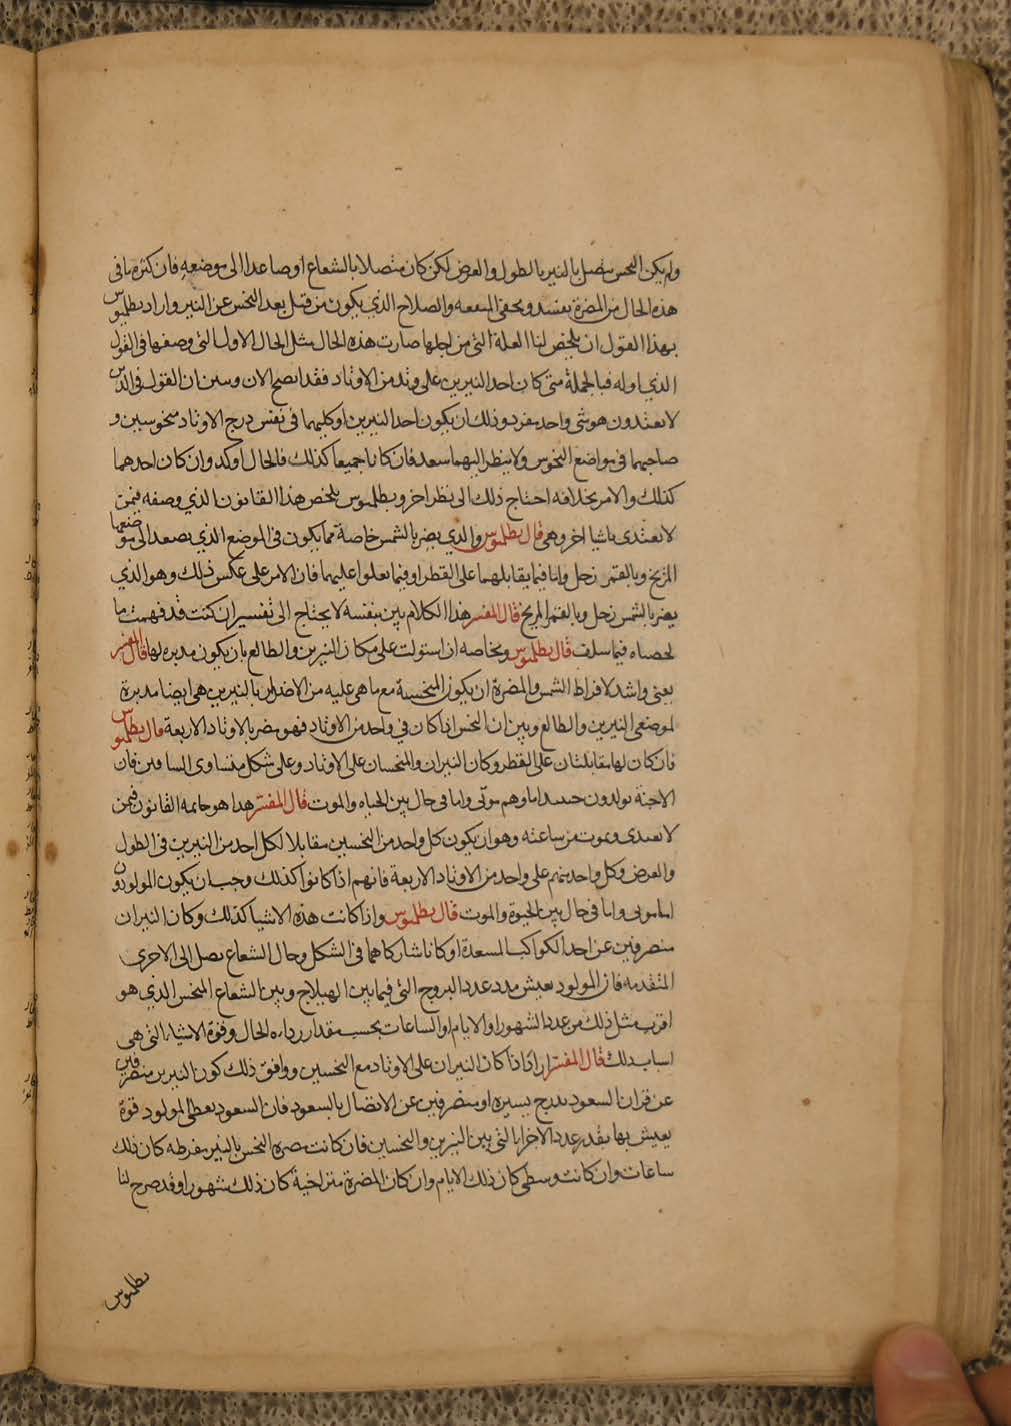 ولم يكن النحس يتصل بالنير بالطول والعرض لكن كان متصلا بالشعاع او صاعدا الى موضعه فان كثرة ما فى
هذه الحال من المضرة يفسد ويخفى المنفعه والصلاح الذي يكون من قبل بعد النحس عن النير واراد بطلميوس
بهذا القول ان يلخص لنا العلة التي من اجلها صارت هذه الحال مثل الحال الاولى التي وصفها فى القول
الذي اوله فبالجملة متى كان احد النيرين على وتد من الاوتاد فقد اتضح الان وتبين ان القول فى الذين
لا يغتذون هو شي واحد مفرد وذلك ان يكون احد النيرين او كليهما فى نفس درج الاوتاد منحوسين و
صاحبهما فى مواضع النحوس ولا ينظر اليهما سعد فان كانا جميعا كذلك فالحال اوكد وان كان احدهما
كذلك والامر بخلافه احتاج ذلك الى نظر اخر وبطلميوس يلخص هذا القانون الذي وصفه فيمن
لا يغتذى باشيا اخر وهى قال بطلميوس والذي يضر بالشمس خاصة مما يكون فى الموضع الذي يصعد الى موضعها
المريخ وبالقمر زحل واما فيما يقابلهما على القطر او فيما يعلوا عليهما فان الامر على عكس ذلك وهو الذي
يضر بالشمس زحل وبالقمر المريخ قال المفسر هذا الكلام بين بنفسه لا يحتاج الى تفسير ان كنت قد فهمت ما
لخصناه فيما سلف قال بطلميوس وبخاصه ان استولت على مكان النيرين والطالع بان يكون مدبره لها قال المفسر
يعنى واشد لافراط الشر والمضرة ان يكون المنحسة مع ما هى عليه من الاضرار بالنيرين هى ايضا مدبرة
لموضعى النيرين والطالع وبين ان النحس اذا كان في واحد من الاوتاد فهو مضر بالاوتاد الاربعة قال بطلميوس
فان كان لها مقابلتان على القطر وكان النيران والمنحسان على الاوتاد وعلى شكل متساوى الساقين فان
الاجنة تولدون حينئذ اما وهم موتى واما فى حال بين الحياه والموت قال المفسر هذا هو خاتمة القانون فيمن
لا يغتدى ويموت من ساعته وهو ان يكون كل واحد من النحسين مقابلا لكل احد من النيرين فى الطول
والعرض وكل واحد منهم على واحد من الاوتاد الاربعة فانهم اذا كانوا كذلك وجب ان يكون المولودون
اما موتى واما فى حال بين الحيوة والموت قال بطلميوس واذا كانت هذه الاشيا كذلك وكان النيران
منصرفين عن احد الكواكب المسعدة او كانا شاركاهما فى الشكل وحال الشعاع يصل الى الاخرى
المتقدمه فان المولود يعيش مدد عدد البروج التي فيما بين الهيلاج وبين الشعاع المنحس الذي هو
اقرب مثل ذلك من عدد الشهور او الايام او الساعات بحسب مقدار رداءه الحال وقوة الاشياء التي هى
اسباب ذلك قال المفسر اراد اذا كان النيران على الاوتاد مع النحسين ووافق ذلك كون النيرين منصرفين
عن قران السعود بدرج يسيره او منصرفين عن الاتصال بالسعود فان السعود يعطى المولود قوة
يعيش بها بقدر عدد الاجزا التي بين النيرين والنحسين فان كانت مضرة النحس بالنير مفرطه كان ذلك
ساعات وان كانت وسطى كان ذلك الايام وان كان المضرة متراخية كان ذلك شهورا وقد صرح لنا
بطلميوس